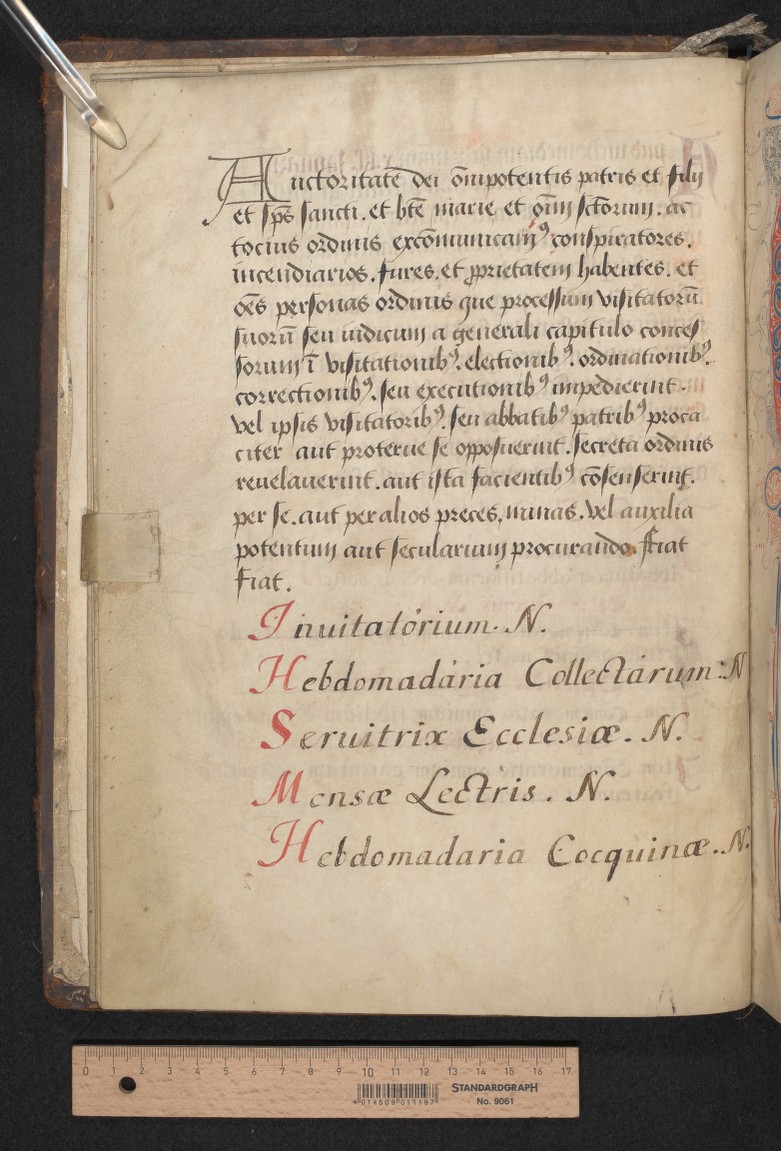 Auctoritatē dei ōmipotentis patris et filij
et sp̄s sancti. et btē marie et oīm sctōrum. ac
tocius ordinis excōmunicamꝰ conspiratores.
incendiarios. fures. et ꝓprietatem habentes. et
oēs personas ordinis que processum visitatorū
suorū seu iudicum a generali capitulo conces
sorum ī visitationibꝰ. electionibꝰ. ordinationibꝰ.
correctionibꝰ. seu executionibꝰ impedierint.
vel ipsis visitatoribꝰ. seu abbatibꝰ patribꝰ proca
citer aut proterue se opposuerint. secreta ordinis
reuelauerint. aut ista facientibꝰ cōsenserint.
per se. aut per alios preces, minas. vel auxilia
potentum aut secularium procurando. ffiat
fiat.
Inuitatórium. N.
Hebdomadária Collectárum: N
Seruitrix Ecclesiæ. N.
Mensæ Lectris. N.
Hebdomadaria Cocquinæ. N.
0 1 2 3 4 5 6 7 8 9 10 11 12 13 14 15 16 17
4 014509 011197
STANDARDGRAPH
No. 9061